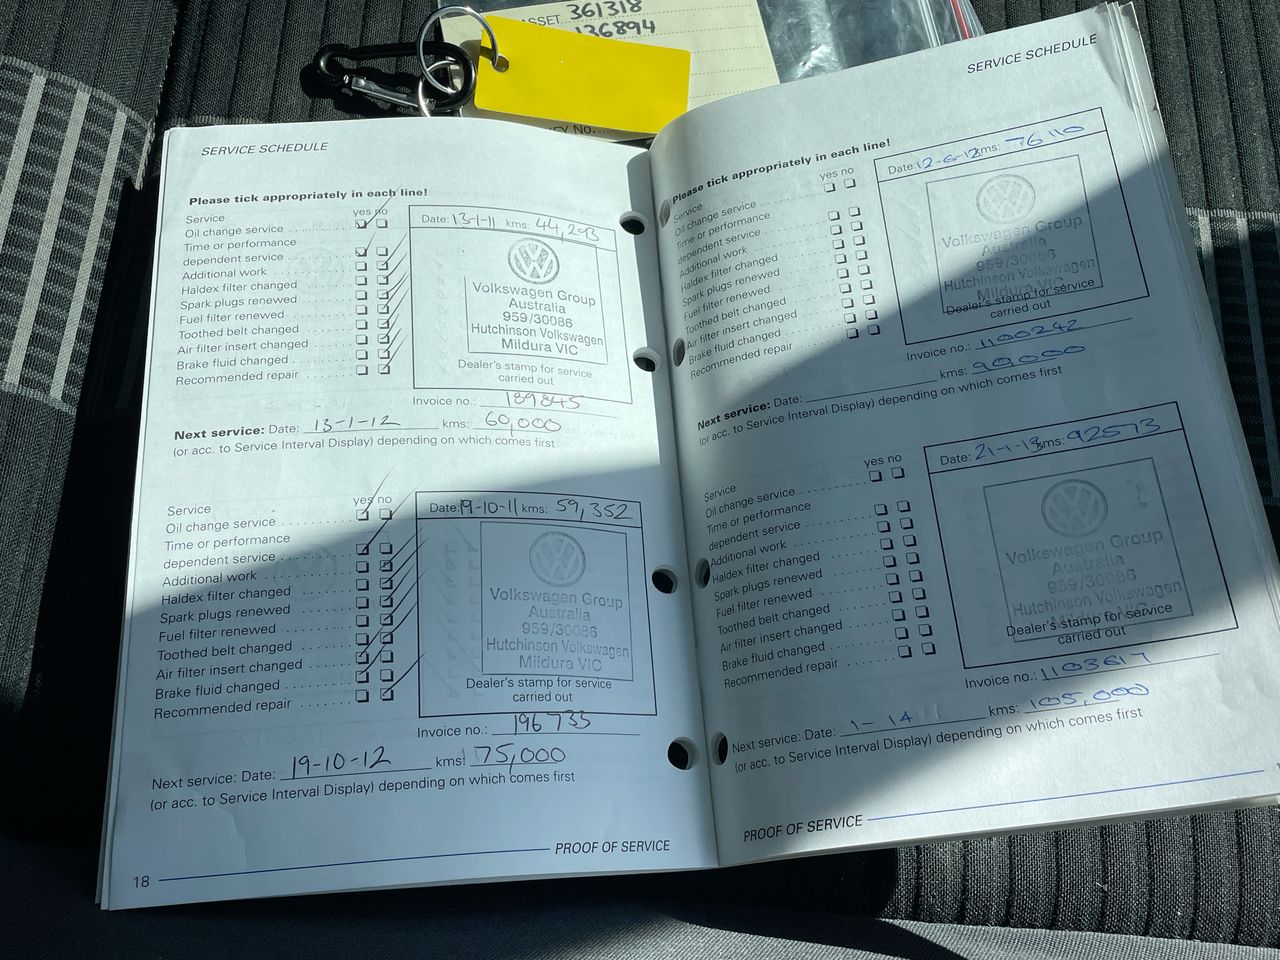 ASSET 361318
136894
KEY No.
SERVICE SCHEDULE
Please tick appropriately in each line!
yes no
Service
Oil change service
Time or performance
dependent service
Additional work
Haldex filter changed
Spark plugs renewed
Fuel filter renewed
Toothed belt changed
Air filter insert changed
Brake fluid changed
Recommended repair
Date: 13-1-11 kms: 44,293
Volkswagen Group
Australia
959/30086
Hutchinson Volkswagen
Mildura VIC
Dealer's stamp for service
carried out
Invoice no.: 189845
Next service: Date: 13-1-12 kms: 60,000
(or acc. to Service Interval Display) depending on which comes first
yes no
Service
Oil change service
Time or performance
dependent service
Additional work
Haldex filter changed
Spark plugs renewed
Fuel filter renewed
Toothed belt changed
Air filter insert changed
Brake fluid changed
Recommended repair
Date: 19-10-11 kms: 59,352
Volkswagen Group
Australia
959/30086
Hutchinson Volkswagen
Mildura VIC
Dealer's stamp for service
carried out
Invoice no.: 196735
Next service: Date: 19-10-12 kms: 75,000
(or acc. to Service Interval Display) depending on which comes first
PROOF OF SERVICE
18
SERVICE SCHEDULE
Please tick appropriately in each line!
yes no
Service
Oil change service
Time or performance
dependent service
Additional work
Haldex filter changed
Spark plugs renewed
Fuel filter renewed
Toothed belt changed
Air filter insert changed
Brake fluid changed
Recommended repair
Date: 12-6-12 kms: 76110
Volkswagen Group
Australia
959/30086
Hutchinson Volkswagen
Mildura VIC
Dealer's stamp for service
carried out
Invoice no.: 1100242
Next service: Date: kms: 90,000
(or acc. to Service Interval Display) depending on which comes first
yes no
Service
Oil change service
Time or performance
dependent service
Additional work
Haldex filter changed
Spark plugs renewed
Fuel filter renewed
Toothed belt changed
Air filter insert changed
Brake fluid changed
Recommended repair
Date: 21-1-13 kms: 92573
Volkswagen Group
Australia
959/30086
Hutchinson Volkswagen
Dealer's stamp for service
carried out
Invoice no.: 1103617
Next service: Date: 1-14 kms: 105,000
(or acc. to Service Interval Display) depending on which comes first
PROOF OF SERVICE